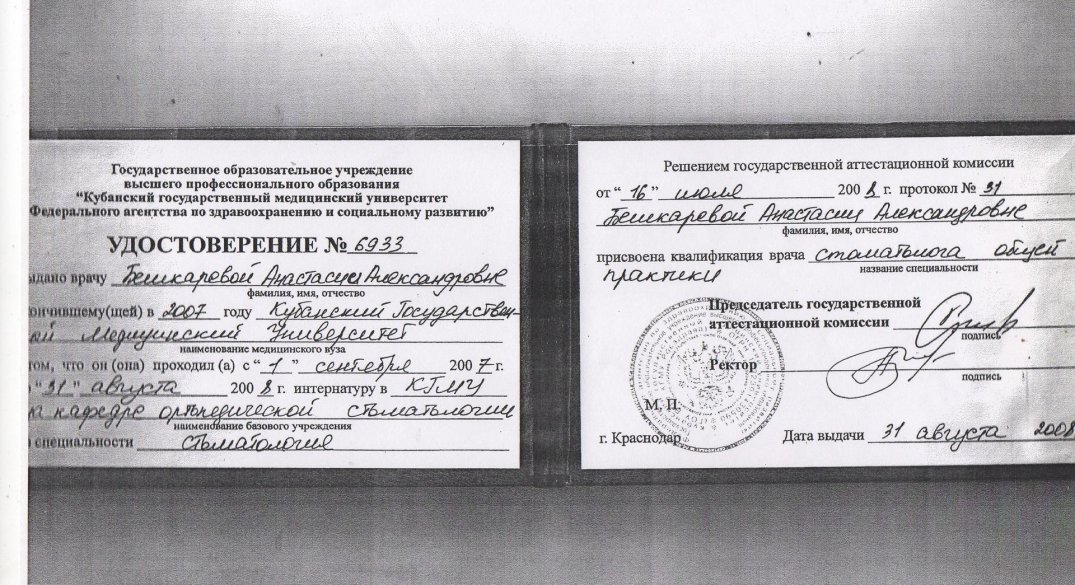 Государственное образовательное учреждение
высшего профессионального образования
“Кубанский государственный медицинский университет
Федерального агентства по здравоохранению и социальному развитию”
УДОСТОВЕРЕНИЕ № 6933
ыдано врачу Бешкаревой Анастасии Александровне
фамилия, имя, отчество
ончившему(щей) в 2007 году Кубанский Государствен-
ой Медицинский Университет
наименование медицинского вуза
том, что он (она) проходил (а) с “ 1 ” сентября 200 7 г.
“ 31 ” августа 200 8 г. интернатуру в КГМУ
на кафедре ортопедической стоматологии
наименование базового учреждения
специальности стоматология
Решением государственной аттестационной комиссии
от “ 16 ” июля 200 8 г. протокол № 31
Бешкаревой Анастасии Александровне
фамилия, имя, отчество
присвоена квалификация врача стоматолога общей
название специальности
практики
Председатель государственной
аттестационной комиссии
подпись
Ректор
подпись
М. П.
г. Краснодар Дата выдачи 31 августа 2008